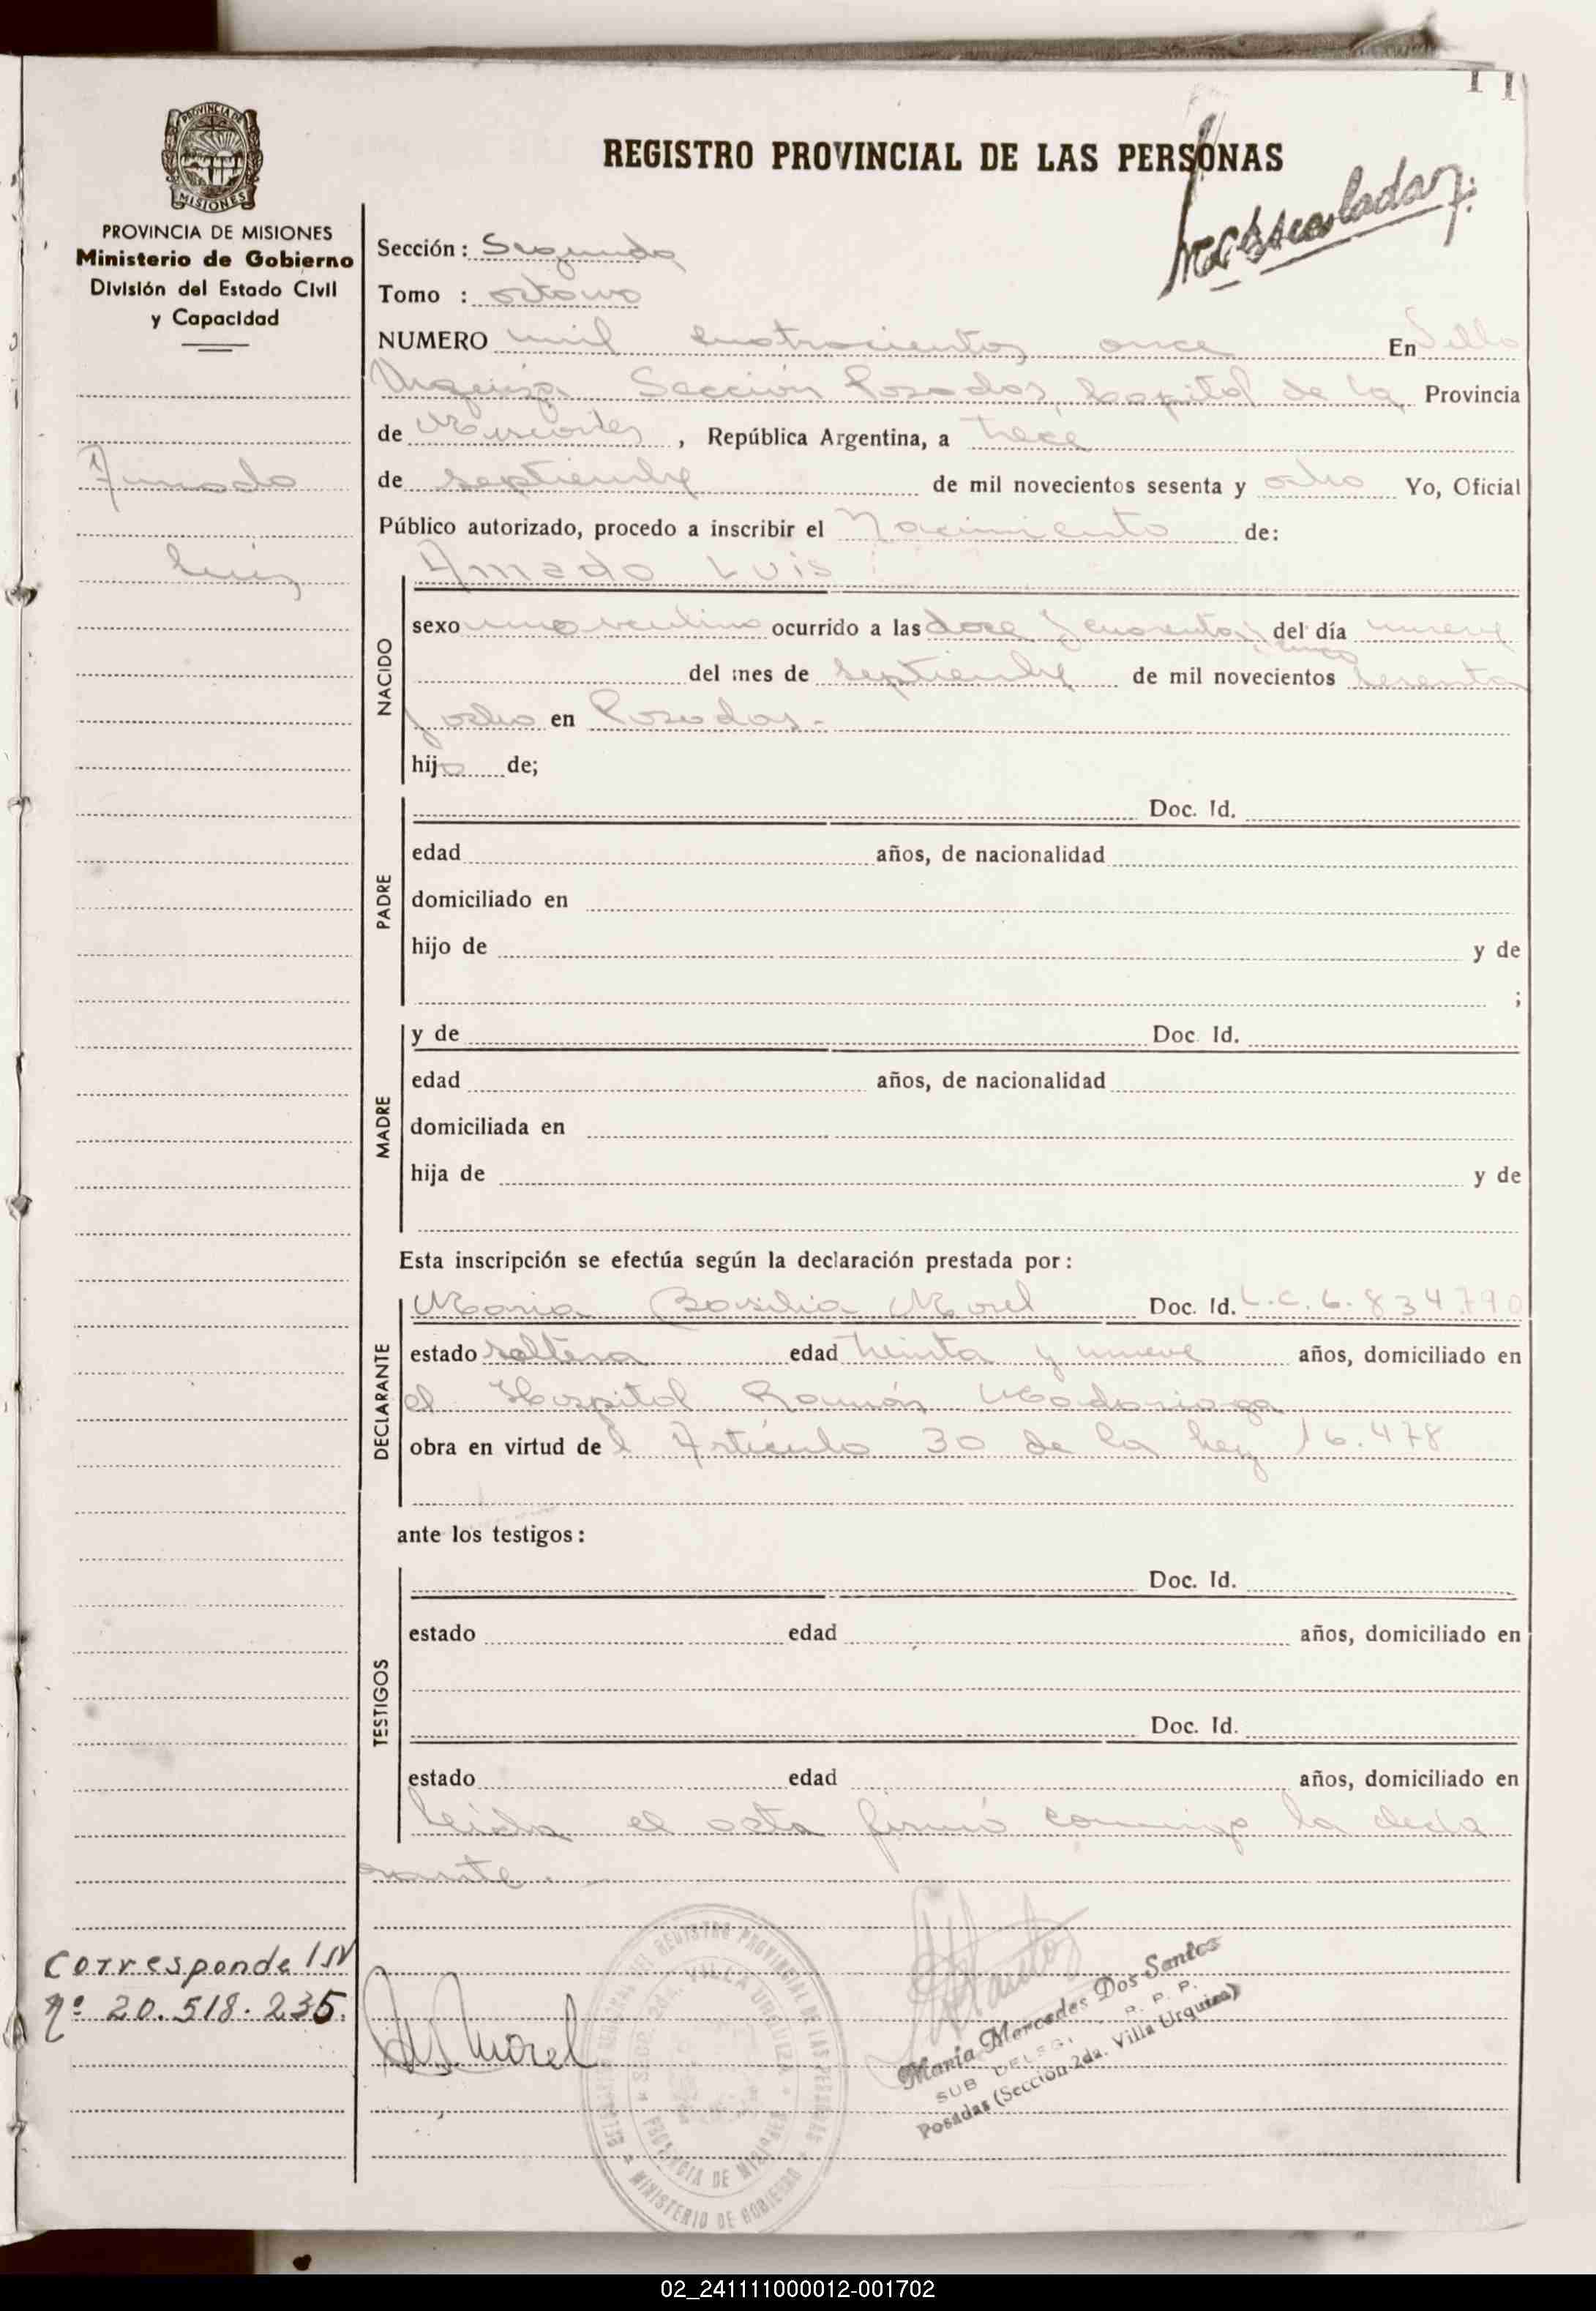 PROVINCIA DE
MISIONES
PROVINCIA DE MISIONES
Ministerio de Gobierno
División del Estado Civil
y Capacidad
REGISTRO PROVINCIAL DE LAS PERSONAS
Sección: Segunda
Tomo : octavo
NUMERO mil cuatrocientos once En Villa
Urquiza Sección Posadas, Capital de la Provincia
de Misiones, República Argentina, a trece
de septiembre de mil novecientos sesenta y ocho Yo, Oficial
Público autorizado, procedo a inscribir el Nacimiento de:
Amado
Luis
NACIDO
Amado Luis
sexo masculino ocurrido a las doce y cuarenta y cinco del día nueve
del mes de septiembre de mil novecientos sesenta
y ocho en Posadas.-
hijo de;
PADRE
Doc. Id.
edad años, de nacionalidad
domiciliado en
hijo de y de
;
MADRE
y de Doc. Id.
edad años, de nacionalidad
domiciliada en
hija de y de
Esta inscripción se efectúa según la declaración prestada por:
DECLARANTE
Maria Basilia Morel Doc. Id. L.C. 6.834.790
estado soltera edad treinta y nueve años, domiciliado en
el Hospital Ramón Madariaga
obra en virtud del Artículo 30 de la ley 16.478
ante los testigos:
TESTIGOS
Doc. Id.
estado edad años, domiciliado en
Doc. Id.
estado edad años, domiciliado en
Leída el acta firmó conmigo la decla
rante.-
Corresponde
nº 20.518.235.
Morel
DELEGACIÓN REGIONAL DEL REGISTRO PROVINCIAL DE LAS PERSONAS
MINISTERIO DE GOBIERNO
SECC. 2da. VILLA URQUIZA
PROVINCIA DE MISIONES
María Mercedes Dos Santos
SUB DELEG. R. P. P.
Posadas (Sección 2da. Villa Urquiza)
02_241111000012-001702